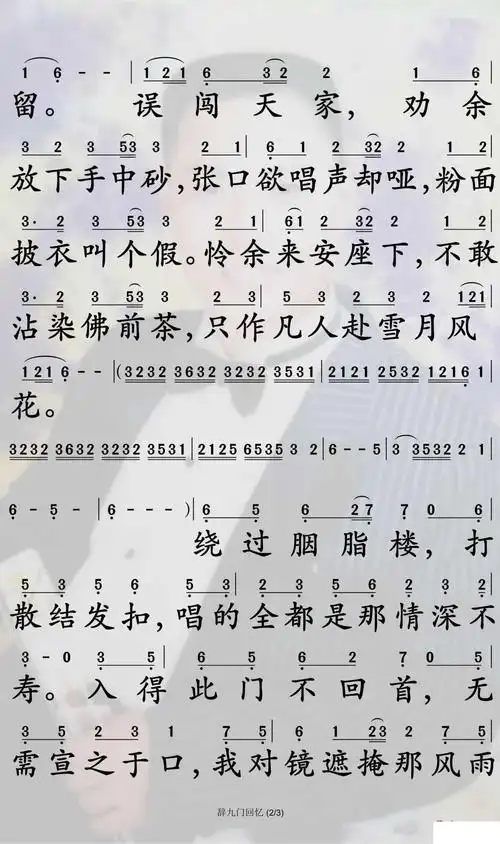 1 6 - - | 1 2 1 6 3 2 2 1 6
留。 误 闯 天 家， 劝 余
3 2 3 53 3 2 1 | 6 1 2 32 2 1 2 |
放下手中砂，张口欲唱声却哑，粉面
3· 2 3 53 3 2 1 | 61 2 32 2 1 2
披衣叫个假。怜余来安座下，不敢
3· 2 3 53 3 2 3 | 5 3 2 3 2 121 |
沾染佛前茶，只作凡人赴雪月风
121 6 - - | (3232 3632 3232 3531 | 2121 2532 12161 |
花。
3232 3632 3232 3531 | 2125 6535 3 2 | 6 - - 5 | 3 3532 2 1 |
6 - 5 - | 6 - - - ) | 6 5 6 27 7 0 6
绕 过 胭 脂 楼， 打
5 3 5 6 5 3 | 2 3 5 6 2 3 2
散结发扣，唱的全都是那情深不
3 - 0 3 5 | 6 5 6 2 7 0 5 |
寿。入 得 此 门 不 回 首， 无
3 5 2 3 1 7 5 | 6 1 23 2 7 5
需宣之于口，我对镜遮掩那风雨
辞九门回忆 (2/3)